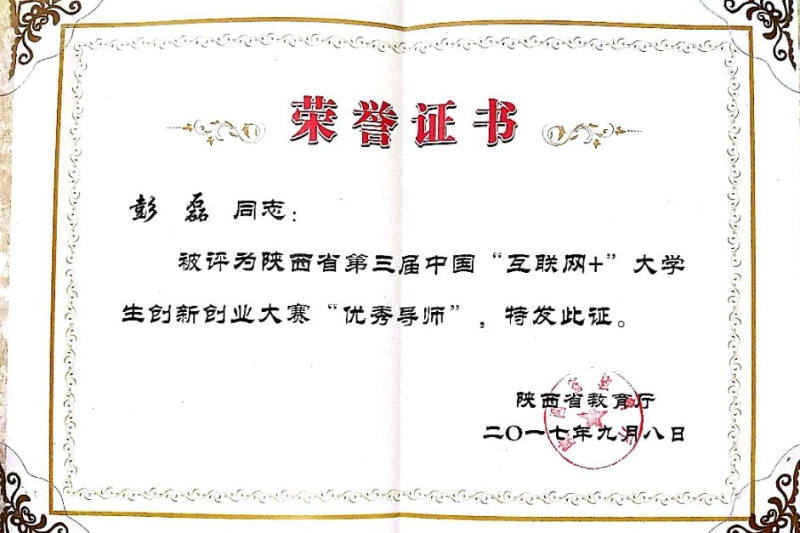 荣誉证书
彭 磊 同志：
被评为陕西省第三届中国“互联网+”大学
生创新创业大赛“优秀导师”，特发此证。
陕西省教育厅
二〇一七年九月八日